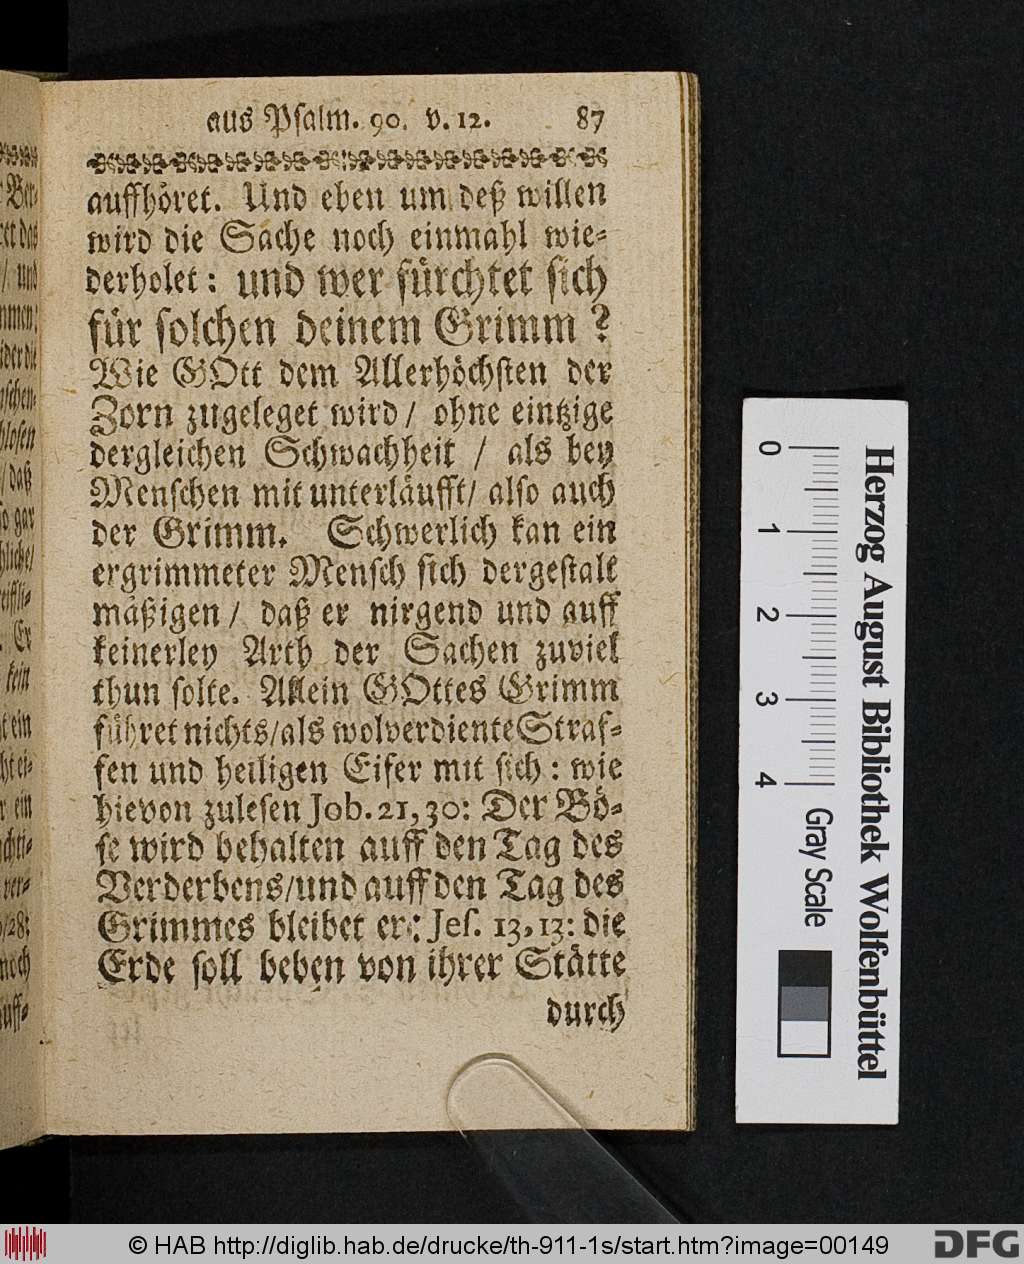 aus Psalm. 90. v. 12. 87
auffhöret. Und eben um deß willen
wird die Sache noch einmahl wie-
derholet: und wer fürchtet sich
für solchen deinem Grimm?
Wie GOtt dem Allerhöchsten der
Zorn zugeleget wird/ ohne eintzige
dergleichen Schwachheit / als bey
Menschen mit unterläufft/ also auch
der Grimm. Schwerlich kan ein
ergrimmeter Mensch sich dergestalt
mäßigen / daß er nirgend und auff
keinerley Arth der Sachen zuviel
thun solte. Allein GOttes Grimm
führet nichts/als wolverdiente Straf-
fen und heiligen Eifer mit sich: wie
hievon zulesen Job. 21, 30: Der Bö-
se wird behalten auff den Tag des
Verderbens/und auff den Tag des
Grimmes bleibet er: Jes. 13, 13: die
Erde soll beben von ihrer Stätte
durch
Herzog August Bibliothek Wolfenbüttel
0 1 2 3 4
Gray Scale
© HAB http://diglib.hab.de/drucke/th-911-1s/start.htm?image=00149
DFG